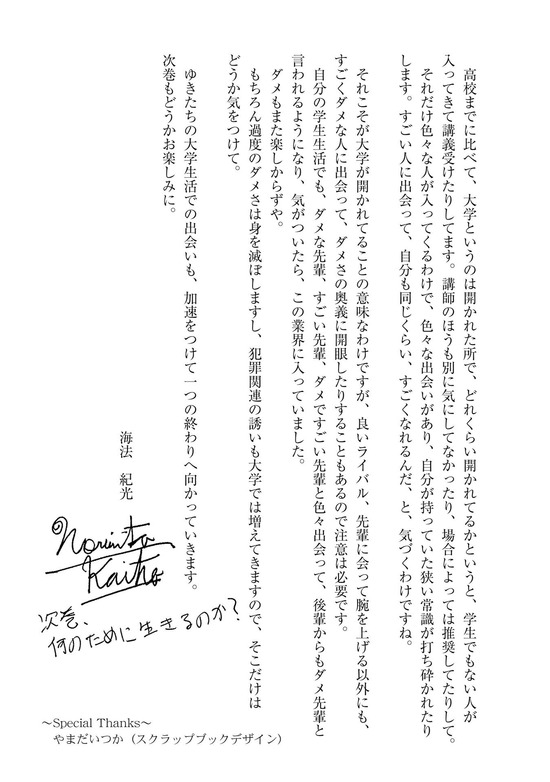 高校までに比べて、大学というのは開かれた所で、どれくらい開かれてるかというと、学生でもない人が
入ってきて講義受けたりしてます。講師のほうも別に気にしてなかったり、場合によっては推奨してたりして。
それだけ色々な人が入ってくるわけで、色々な出会いがあり、自分が持っていた狭い常識が打ち砕かれたり
します。すごい人に出会って、自分も同じくらい、すごくなれるんだ、と、気づくわけですね。
それこそが大学が開かれてることの意味なわけですが、良いライバル、先輩に会って腕を上げる以外にも、
すごくダメな人に出会って、ダメさの奥義に開眼したりすることもあるので注意は必要です。
自分の学生生活でも、ダメな先輩、すごい先輩、ダメですごい先輩と色々出会って、後輩からもダメ先輩と
言われるようになり、気がついたら、この業界に入っていました。
ダメもまた楽しからずや。
もちろん過度のダメさは身を滅ぼしますし、犯罪関連の誘いも大学では増えてきますので、そこだけは
どうか気をつけて。
ゆきたちの大学生活での出会いも、加速をつけて一つの終わりへ向かっていきます。
次巻もどうかお楽しみに。
海法 紀光
Norimitsu
Kaiho
次巻、
何のために生きるのか?
〜Special Thanks〜
やまだいつか(スクラップブックデザイン)